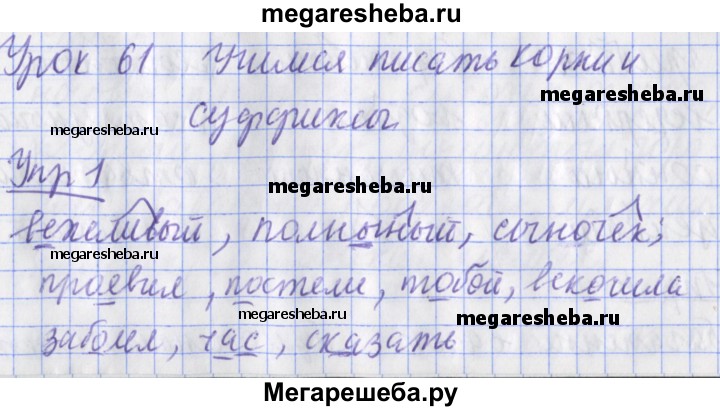 megaresheba.ru
Урок 61 Учимся писать корни и
megaresheba.ru
megaresheba.ru суффиксы
Упр 1
megaresheba.ru
вежливый, полный, сыночек;
megaresheba.ru
проявил, постели, тобой, вскочила
megaresheba.ru megaresheba.ru
заболел, час, сказать
Мегарешеба.ру